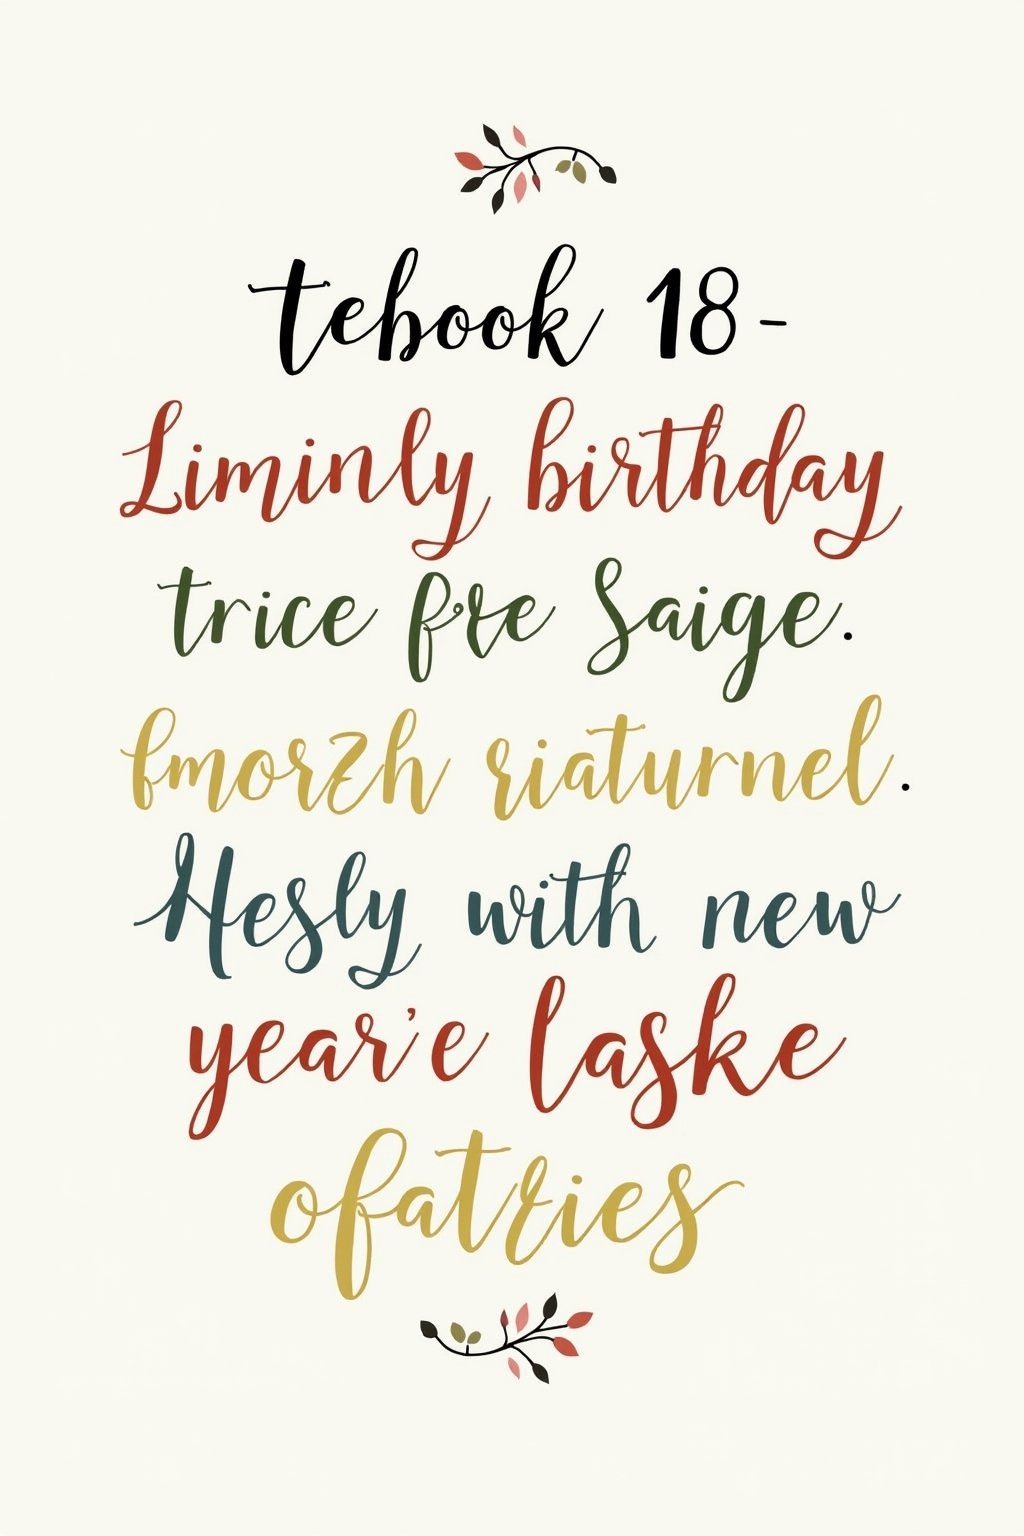 tebook 18-
Liminly birthday
trice fre Saige.
fmorzh riaturnel.
Hesly with new
year'e laske
ofatries